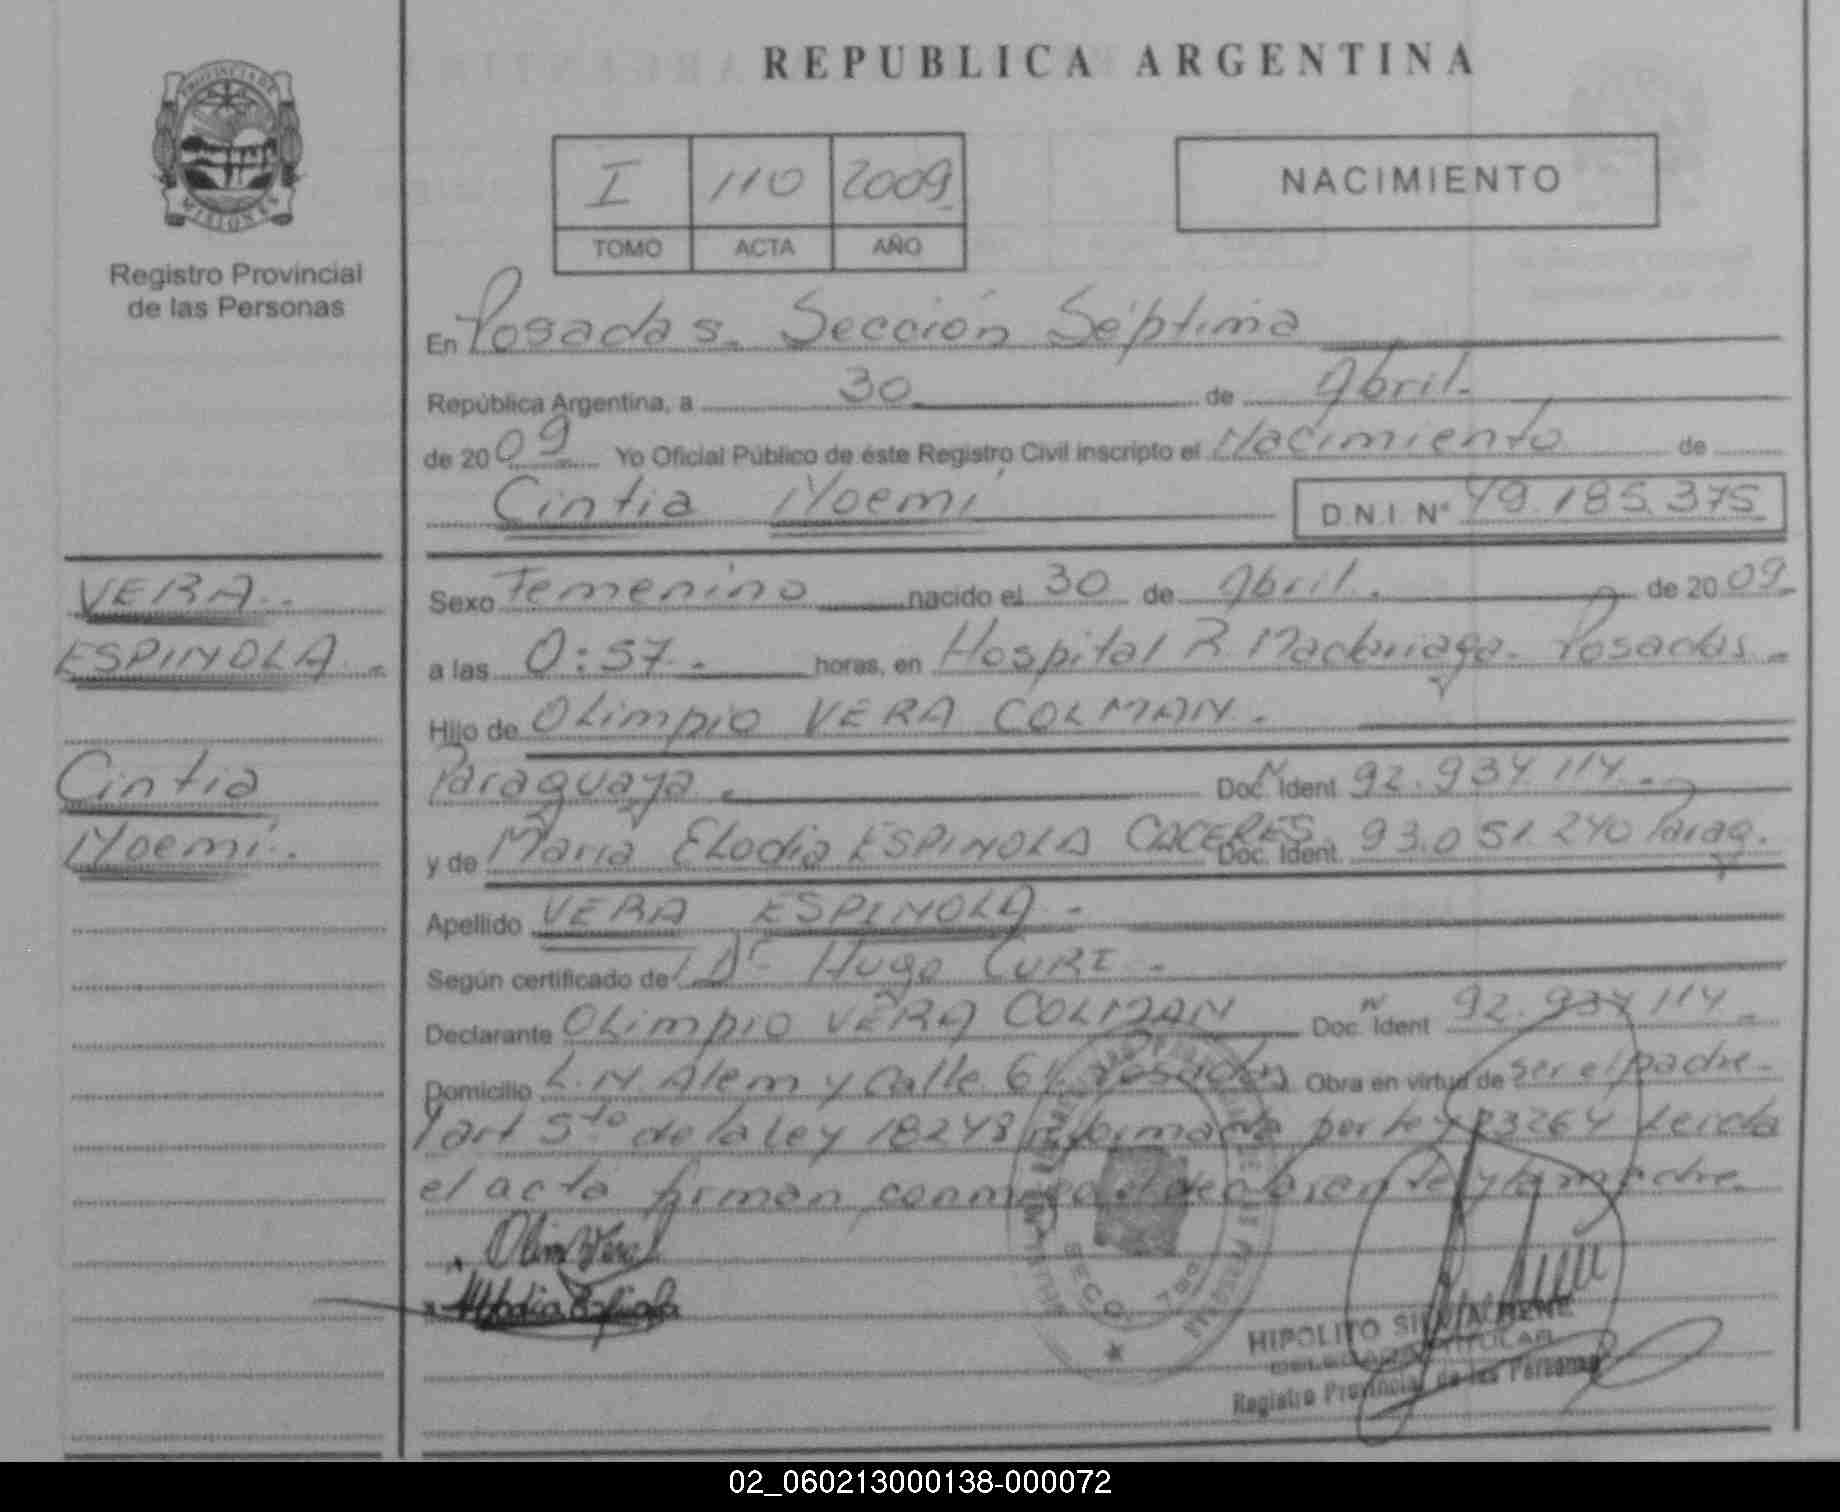 REPUBLICA ARGENTINA
PROVINCIA DE
MISIONES
Registro Provincial
de las Personas
I 110 2009
TOMO ACTA AÑO
NACIMIENTO
En Posadas. Sección Séptima
República Argentina, a 30 de Abril.
de 2009 Yo Oficial Público de éste Registro Civil inscripto el Nacimiento de
Cintia Noemí
D.N.I. Nº 49.185.375
VERA.
ESPINOLA.
Cintia
Noemí.
Sexo Femenino nacido el 30 de Abril. de 2009.
a las 0:57. horas, en Hospital R Madariaga. Posadas.
Hijo de Olimpio VERA COLMAN.
Paraguaya. Doc. Ident 92.934.114.
y de Maria Elodia ESPINOLA CACERES. Doc. Ident. 93.051.240 Parag.
Apellido VERA ESPINOLA.
Según certificado de Dr Hugo CURE.
Declarante Olimpio VERA COLMAN Doc. Ident 92.934 114.
Domicilio L.N. Alem y Calle 61. Posadas Obra en virtud de ser el padre.
Y art 5to de la ley 18248 reformada por ley 23264 Leida
el acta firman conmigo el declarante y la madre.
Olim Vera
Elodia Espinola
HIPOLITO
DELEGADO TITULAR
Registro Provincial de las Personas
02_060213000138-000072